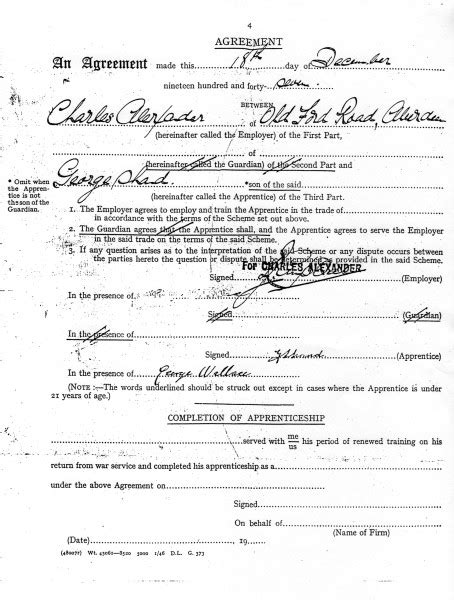 4
AGREEMENT
An Agreement made this 18th day of December
nineteen hundred and forty-seven
BETWEEN
Charles Alexander of Old Ford Road, Aberdeen
(hereinafter called the Employer) of the First Part,
of
(hereinafter called the Guardian) of the Second Part and
George *son of the said
* Omit when
the Appren-
tice is not
the son of the
Guardian.
(hereinafter called the Apprentice) of the Third Part.
1. The Employer agrees to employ and train the Apprentice in the trade of
in accordance with the terms of the Scheme set out above.
2. The Guardian agrees that the Apprentice shall, and the Apprentice agrees to serve the Employer
in the said trade on the terms of the said Scheme.
3. If any question arises as to the interpretation of the said Scheme or any dispute occurs between
the parties hereto the question or dispute shall be determined as provided in the said Scheme.
FOR CHARLES ALEXANDER
Signed (Employer)
In the presence of
Signed (Guardian)
In the presence of
Signed (Apprentice)
In the presence of George Wallace
(NOTE :—The words underlined should be struck out except in cases where the Apprentice is under
21 years of age.)
COMPLETION OF APPRENTICESHIP
served with me/us his period of renewed training on his
return from war service and completed his apprenticeship as a
under the above Agreement on
Signed
On behalf of
(Name of Firm)
(Date) 19
(48007) Wt. 43060—8520 5000 1/46 D.L. G. 373